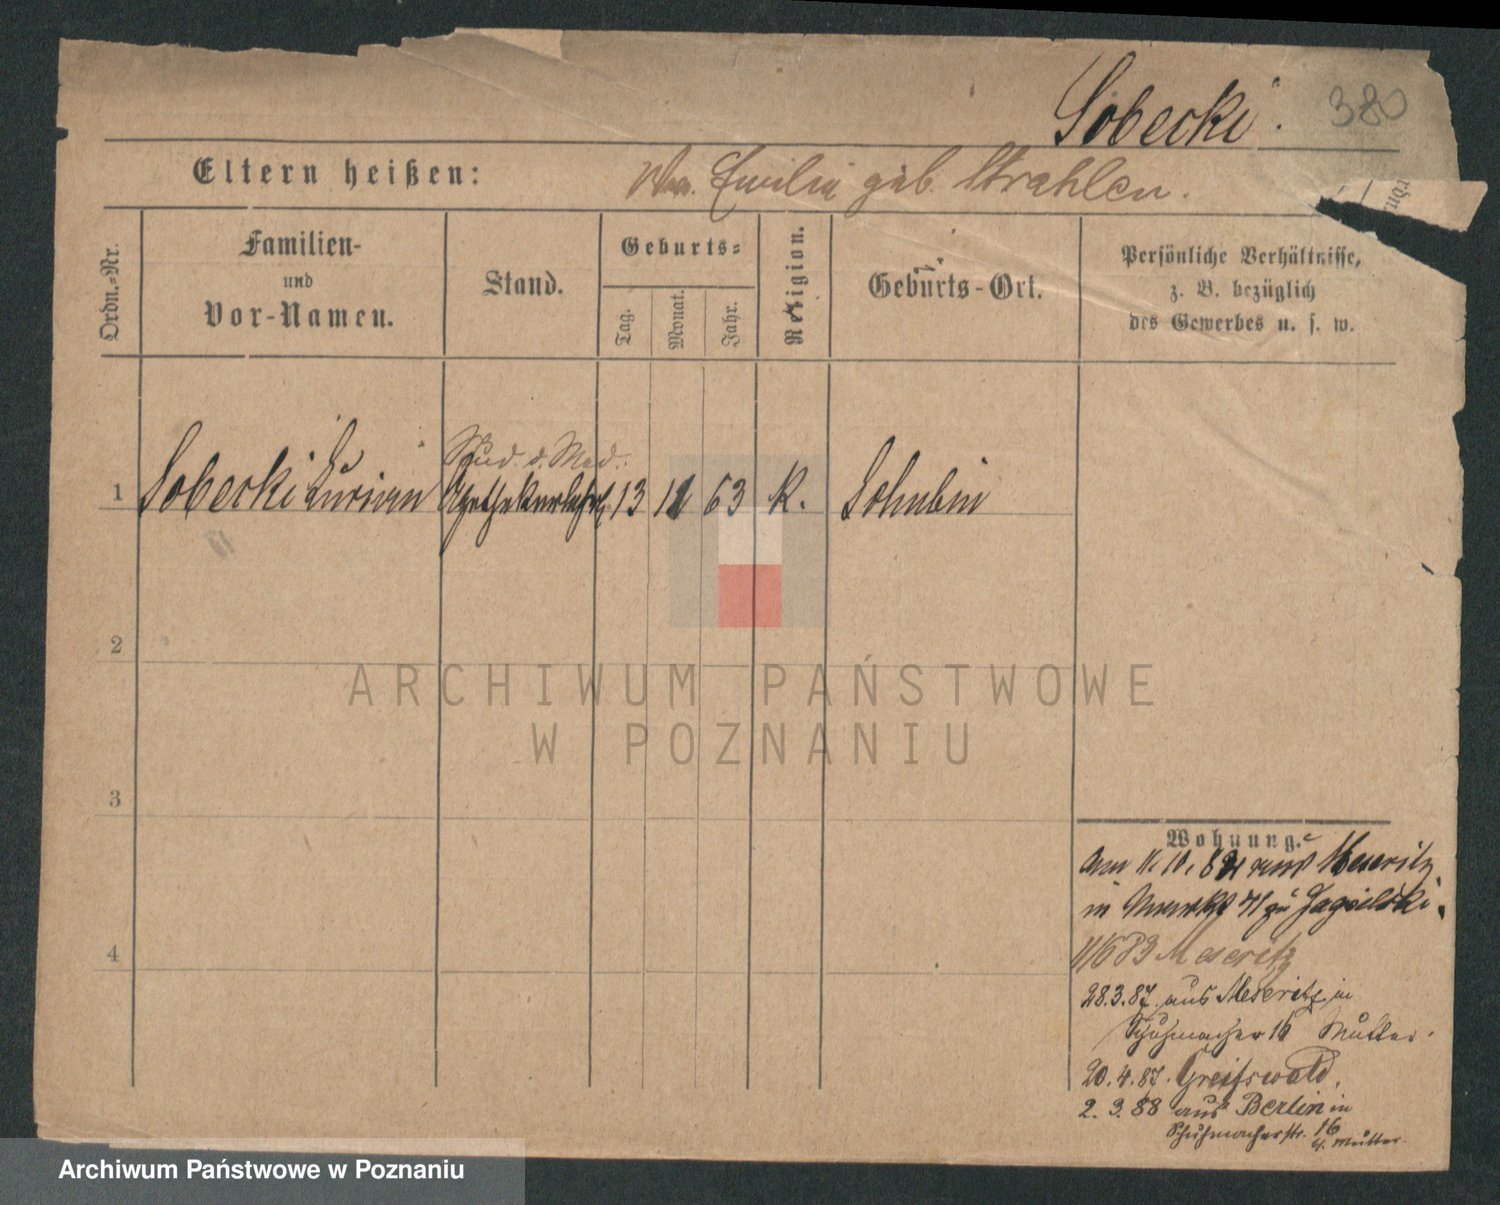 Sobecki.
380
Eltern heißen:
Wwe. Emilie geb. Strahlen.
Ordn.-Nr.
Familien-
und
Vor-Namen.
Stand.
Geburts-
Tag.
Monat.
Jahr.
Religion.
Geburts-Ort.
Persönliche Verhältnisse,
z. B. bezüglich
des Gewerbes u. s. w.
Stud. d. Med.
1 Sobecki Apothekerlehrl. 13 63 K. Schubin
2
3
4
ARCHIWUM PAŃSTWOWE
W POZNANIU
Wohnung.
11. 10. aus Meseritz
in 71 zu Jagielski.
11/6 83 Meseritz
28.3.87. aus Meseritz in
Schuhmacher 16 Mutter.
20.4.87. Greifswald.
2. 3. 88 aus Berlin in
Schuhmacherstr. 16
b/ Mutter.
Archiwum Państwowe w Poznaniu